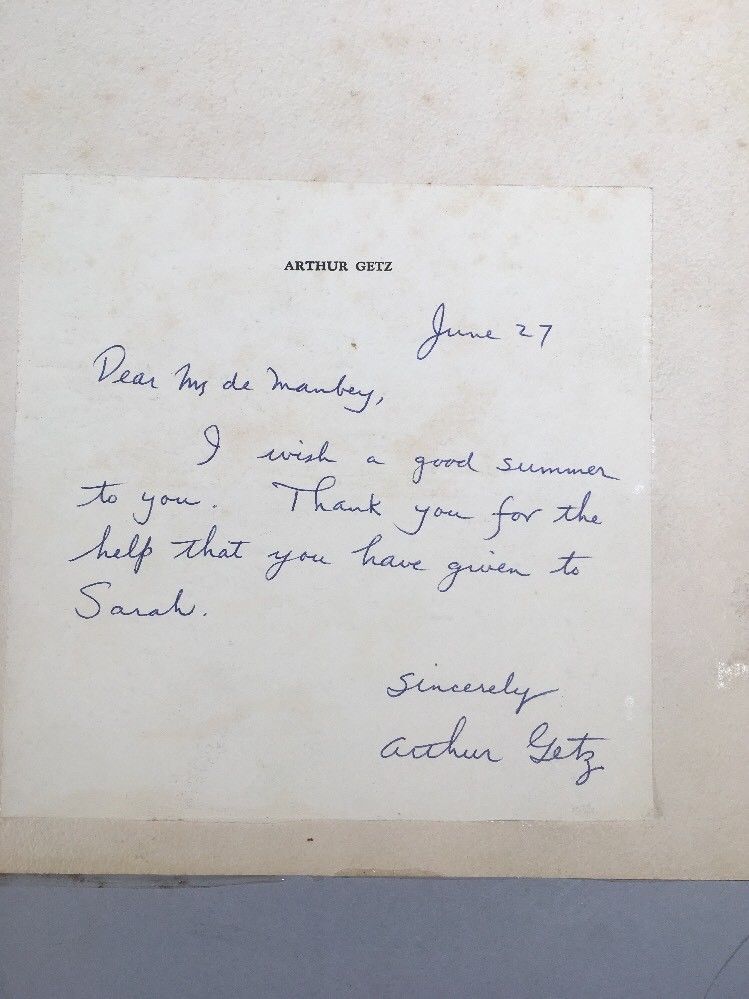 ARTHUR GETZ
June 27
Dear Ms de Manbey,
I wish a good summer
to you. Thank you for the
help that you have given to
Sarah.
Sincerely
Arthur Getz